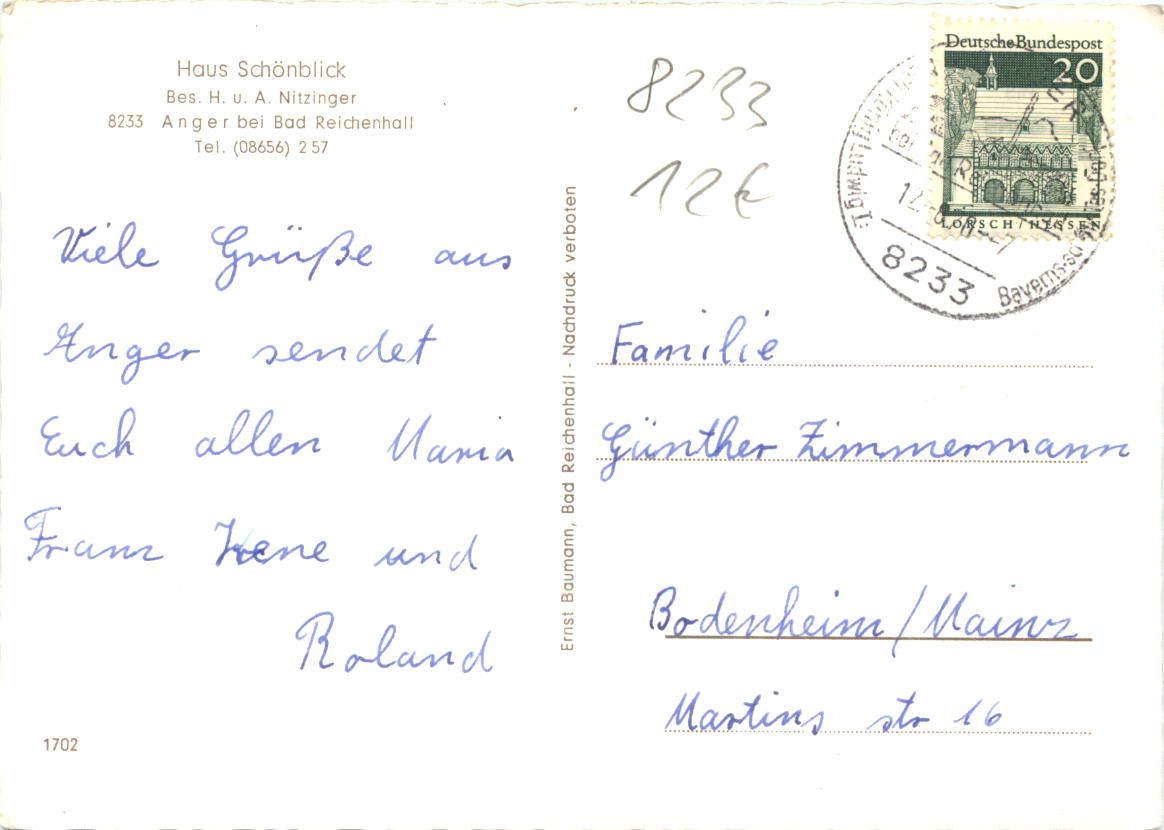 Haus Schönblick
Bes. H. u. A. Nitzinger
8233 Anger bei Bad Reichenhall
Tel. (08656) 2 57
8233
12€
Deutsche Bundespost
20
LORSCH/HESSEN
König Ludwig I.:
8233
Bayerns
Viele Grüße aus
Anger sendet
Euch allen Maria
Franz Irene und
Roland
1702
Ernst Baumann, Bad Reichenhall - Nachdruck verboten
Familie
Günther Zimmermann
Bodenheim/Mainz
Martins str 16